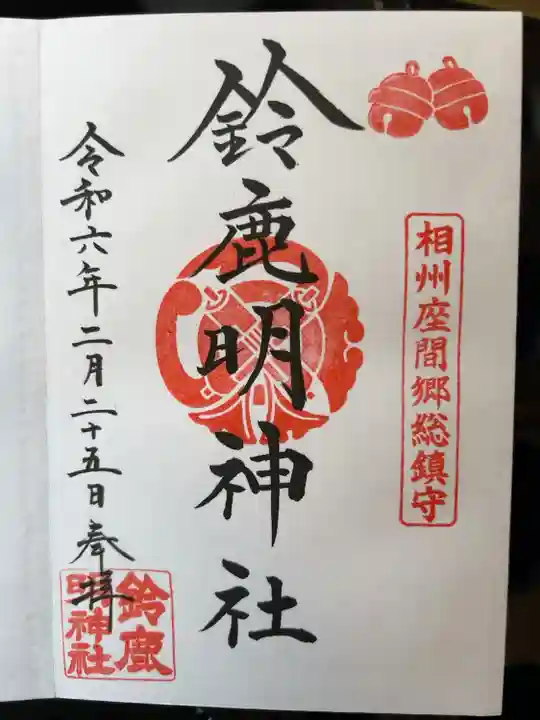 相州座間郷総鎮守
鈴鹿明神社
令和六年二月二十五日奉拝
鈴鹿
明神社